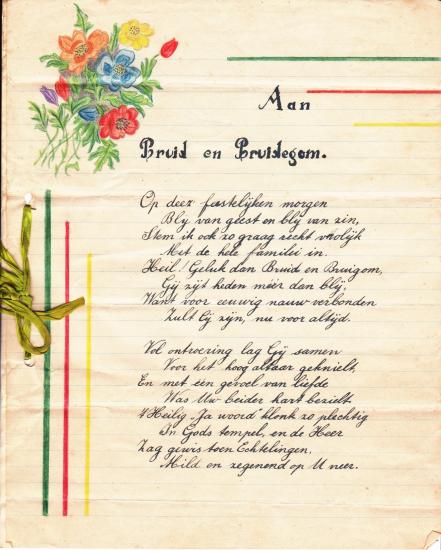 Aan
Bruid en Bruidegom.
Op deez feestelijken morgen
Bly van geest en bly van zin,
Stem ik ook zo graag recht vrolijk
Met de hele familei in.
Heil! Geluk dan Bruid en Bruigom,
Gij zijt heden méér dan blij;
Want voor eeuwig nauw verbonden
Zult Gij zijn, nu voor altijd.
Vol ontroering lag Gij samen
Voor het hoog altaar geknielt,
En met een gevoel van liefde
Was Uw beider hart bezielt.
't Heilig "Ja woord" klonk zo plechtig
In Gods tempel, en de Heer
Zag gewis toen Echtelingen,
Mild en zegenend op U neer.